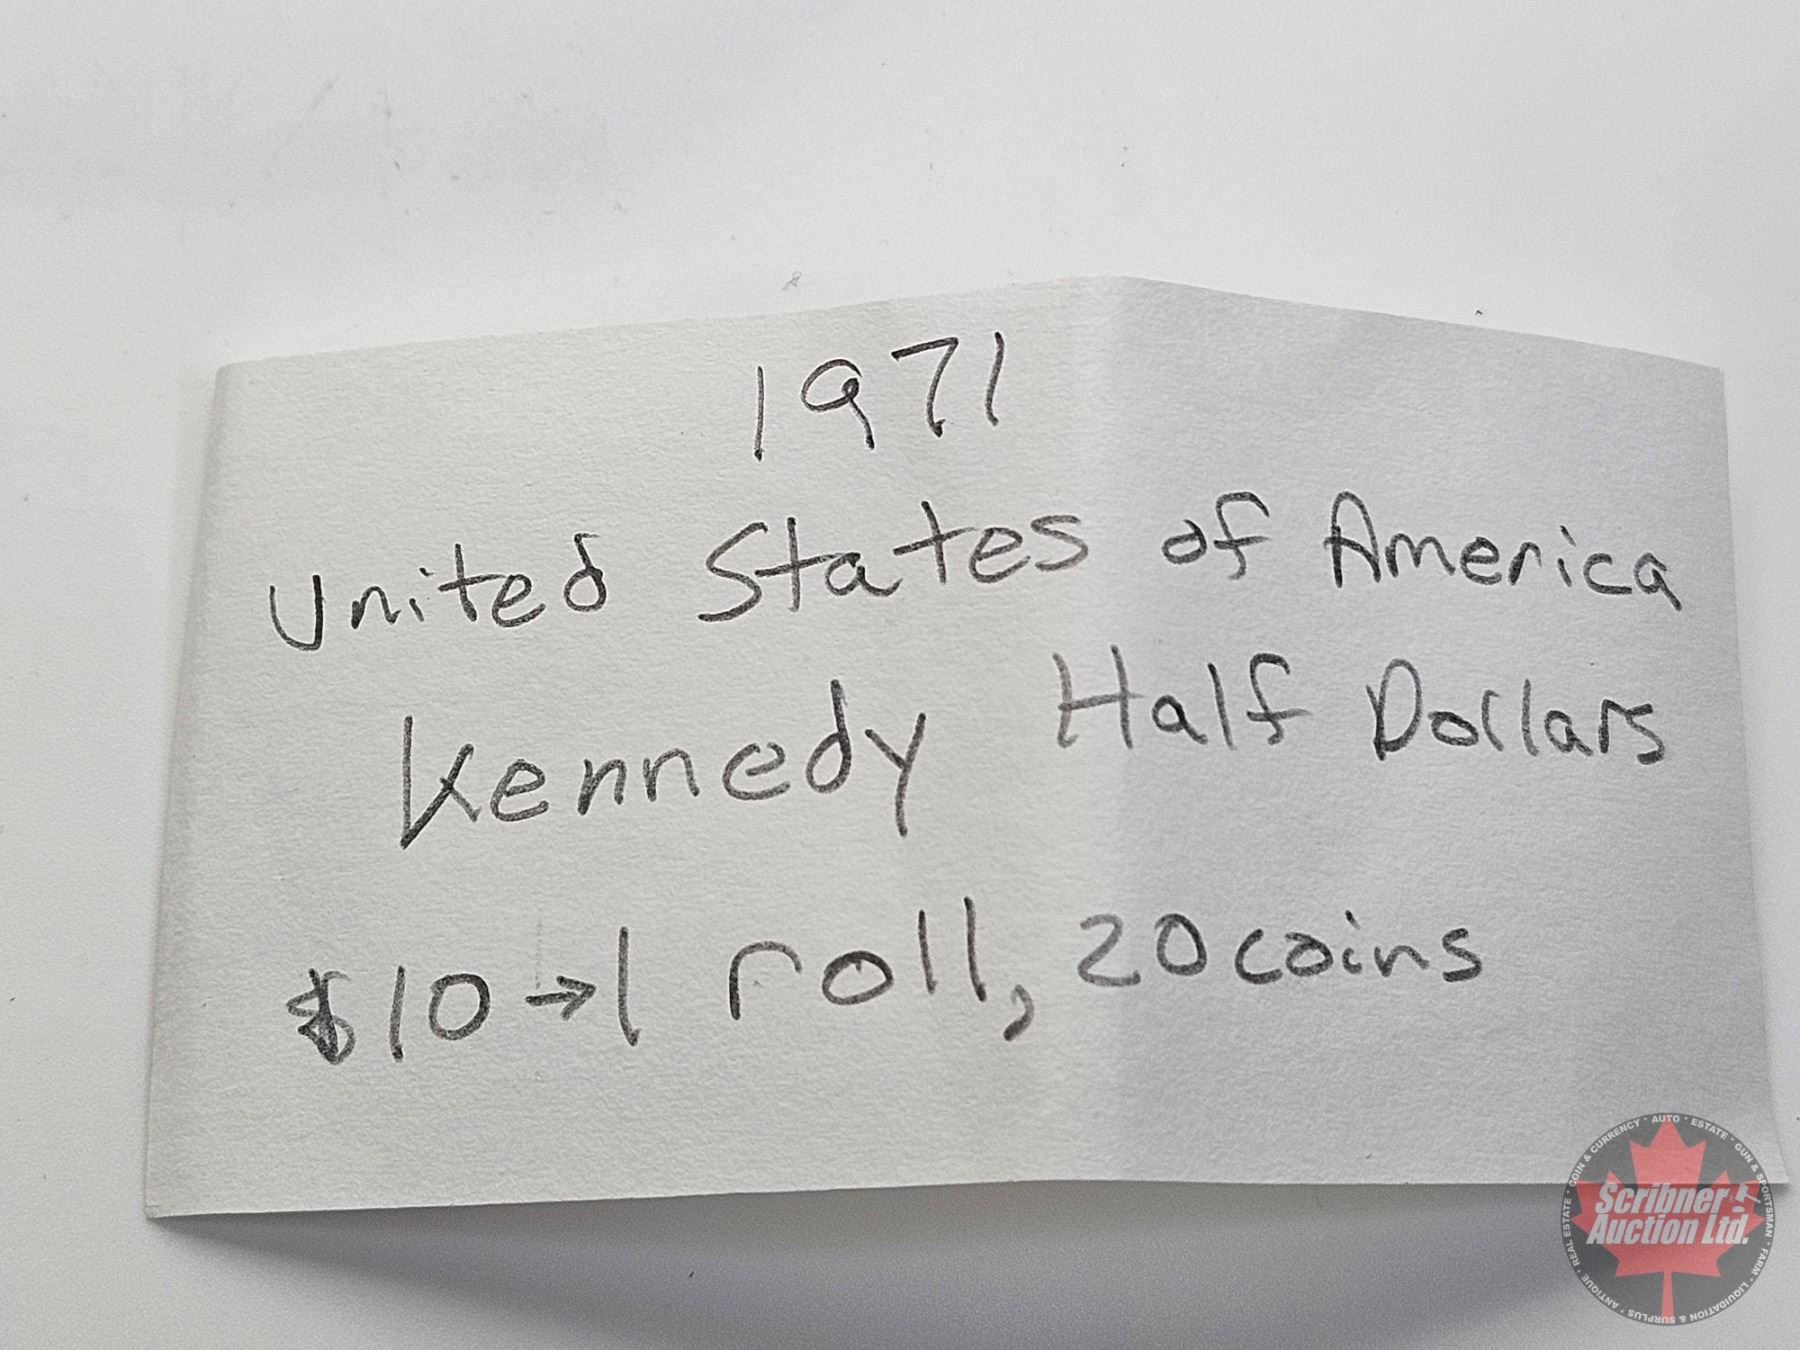 1971
United States of America
Kennedy Half Dollars
$10→1 roll, 20 coins
Scribner
Auction Ltd.
COIN & CURRENCY • AUTO • ESTATE • GUN & SPORTSMAN • FARM • LIQUIDATION & SURPLUS • ANTIQUE • REAL ESTATE •